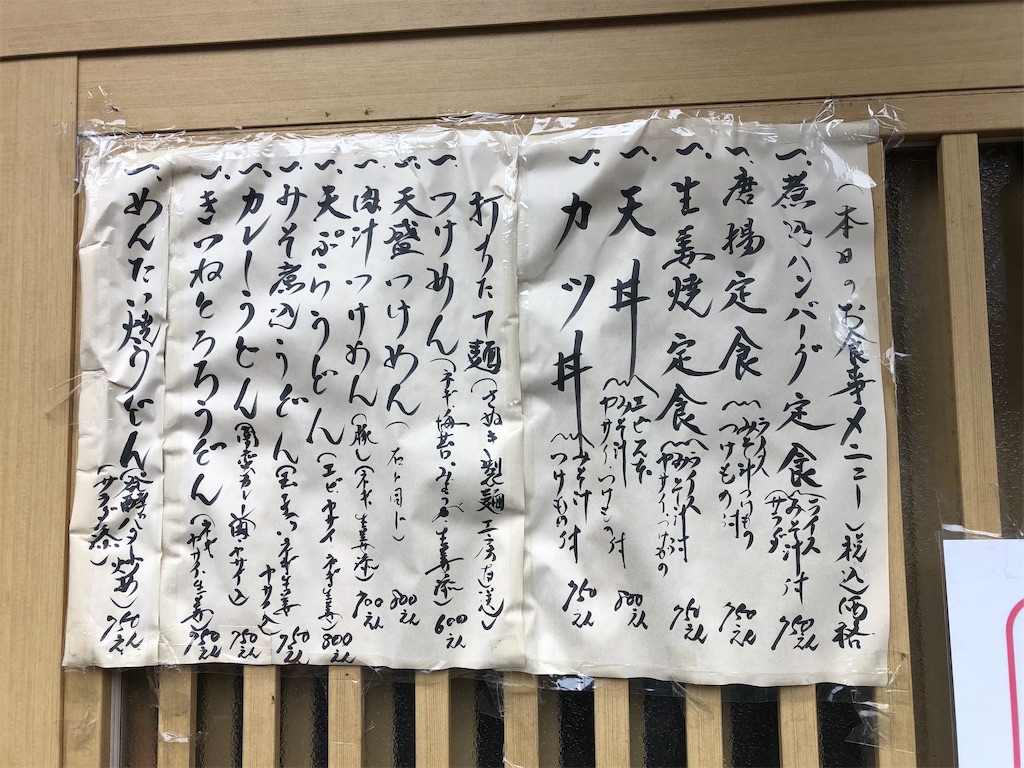 (本日のお食事メニュー) 税込価格
一、煮込ハンバーグ定食 (ライス みそ汁付 サラダ) 750えん
一、唐揚定食 (ライス みそ汁 つけもの付) 750えん
一、生姜焼定食 (ライス みそ汁付 ヤサイ、つけもの) 750えん
一、天丼 (エビ みそ汁 ヤサイ・つけもの付) 800えん
一、カツ丼 (みそ汁 つけもの付) 750えん
打ちたて麺 (さぬき製麺工房直送)
一、つけめん (ネギ 海苔 みょうが 生姜添) 600えん
一、天盛つけめん (右と同じ) 800えん
一、肉汁つけめん (豚) (ネギ 生姜添) 700えん
一、天ぷらうどん (エビ、ヤサイ ネギ生姜) 800えん
一、みそ煮込うどん (玉子 ネギ生姜 ヤサイ入) 750えん
一、カレーうどん (カレー 肉 ヤサイ入) 750えん
一、きつねとろろうどん (ネギ ヤサイ・生姜) 750えん
一、めんたい焼うどん (発酵バタ炒め) (サラダ添) 750えん